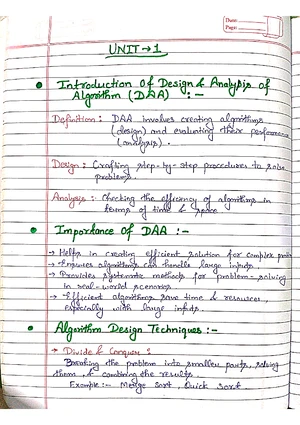 Date:
Page:
UNIT → 1
Introduction Of Design & Analysis of
Algorithm (DAA) :-
Definition : DAA involves creating algorithms
(design) and evaluating their performance
(analysis).
Design : Crafting step-by-step procedures to solve
problems.
Analysis : Checking the efficiency of algorithms in
terms of time & space
Importance Of DAA :-
→ Helps in creating efficient solution for complex
→ Ensures algorithms can handle large inputs.
→ Provides systematic methods for problem-solving
in real-world scenarios
→ Efficient algorithms save time & resources,
especially with large inputs.
Algorithm Design Techniques :-
→ Divide & Conquer :
Breaking the problem into smaller parts, solving
them & combining the results.
Example :- Merge Sort, Quick Sort